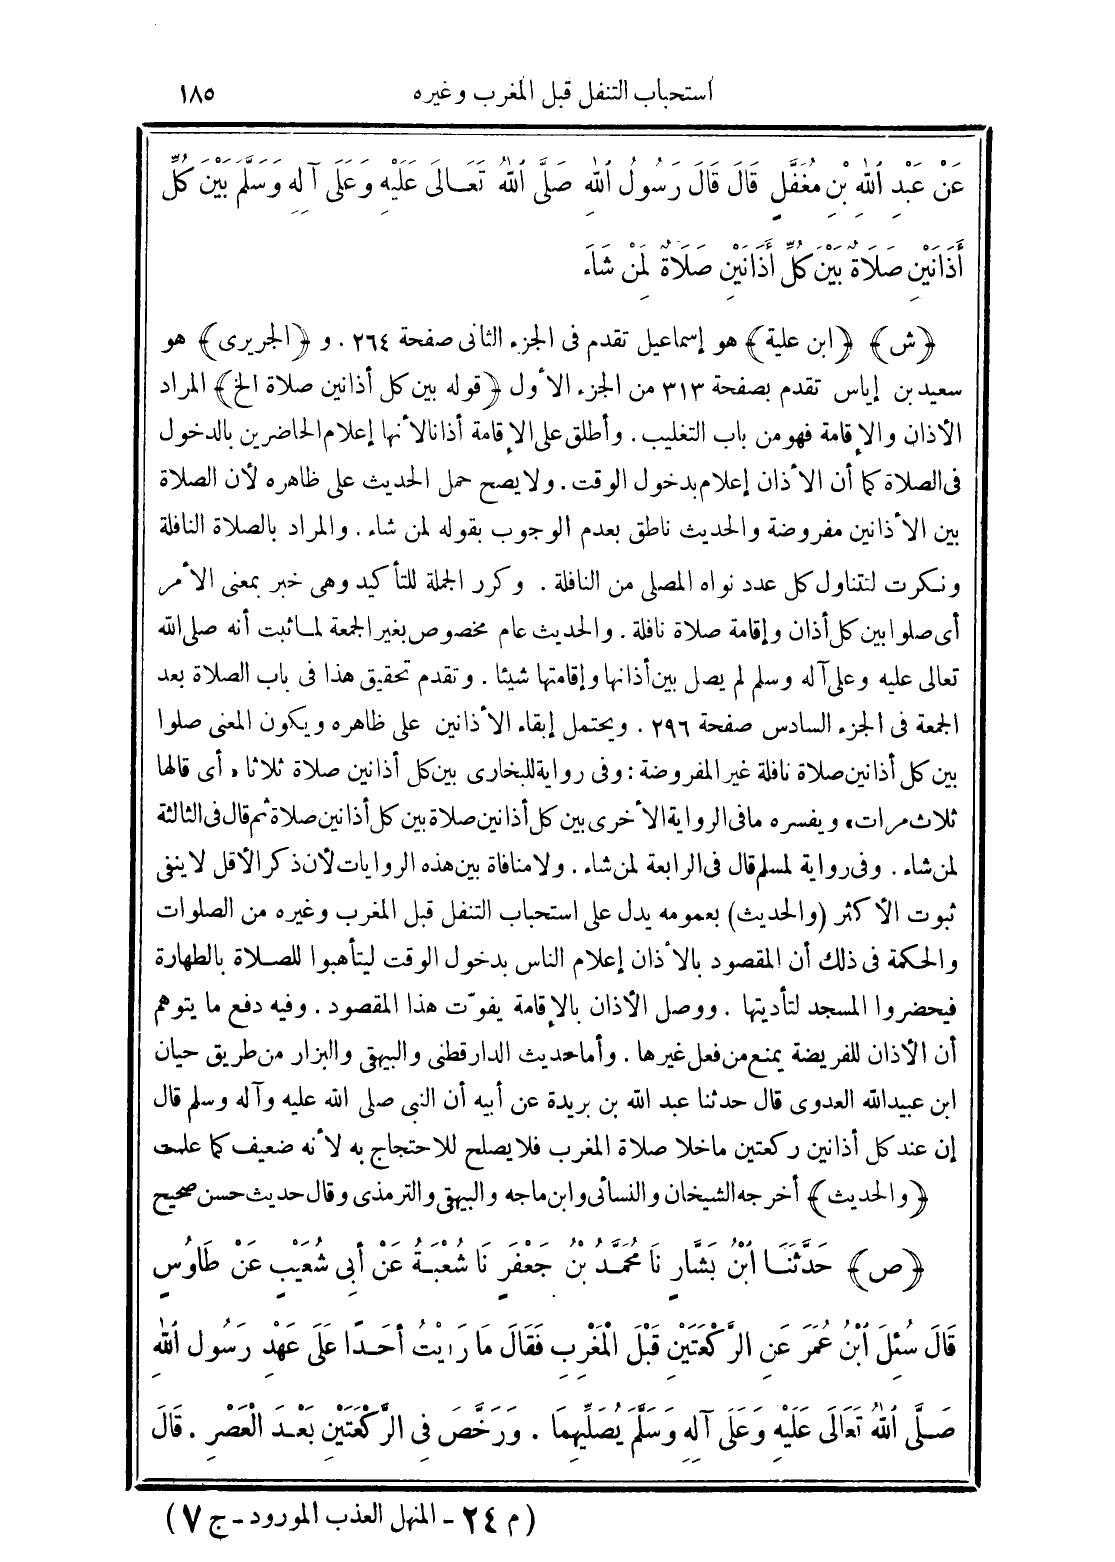 استحباب التنفل قبل المغرب وغيره ١٨٥
عَنْ عَبْدِ اللهِ بْنِ مُغَفَّلٍ قَالَ قَالَ رَسُولُ اللهِ صَلَّى اللهُ تَعَالَى عَلَيْهِ وَعَلَى آلِهِ وَسَلَّمَ بَيْنَ كُلِّ
أَذَانَيْنِ صَلَاةٌ بَيْنَ كُلِّ أَذَانَيْنِ صَلَاةٌ لِمَنْ شَاءَ
﴿ش﴾ ﴿ابن علية﴾ هو إسماعيل تقدم فى الجزء الثانى صفحة ٢٦٤ . و ﴿الجريرى﴾ هو
سعيد بن إياس تقدم بصفحة ٣١٣ من الجزء الأول ﴿قوله بين كل أذانين صلاة الخ﴾ المراد
الأذان والإقامة فهو من باب التغليب . وأطلق على الإقامة أذانا لأنها إعلام الحاضرين بالدخول
فى الصلاة كما أن الأذان إعلام بدخول الوقت . ولا يصح حمل الحديث على ظاهره لأن الصلاة
بين الأذانين مفروضة والحديث ناطق بعدم الوجوب بقوله لمن شاء . والمراد بالصلاة النافلة
ونكرت لتتناول كل عدد نواه المصلى من النافلة . وكرر الجملة للتأكيد وهى خبر بمعنى الأمر
أى صلوا بين كل أذان وإقامة صلاة نافلة . والحديث عام مخصوص بغير الجمعة لما ثبت أنه صلى الله
تعالى عليه وعلى آله وسلم لم يصل بين أذانها وإقامتها شيئا . وتقدم تحقيق هذا فى باب الصلاة بعد
الجمعة فى الجزء السادس صفحة ٢٩٦ . ويحتمل إبقاء الأذانين على ظاهره ويكون المعنى صلوا
بين كل أذانين صلاة نافلة غير المفروضة : وفى رواية للبخارى بين كل أذانين صلاة ثلاثا ، أى قالها
ثلاث مرات، ويفسره ما فى الرواية الأخرى بين كل أذانين صلاة بين كل أذانين صلاة ثم قال فى الثالثة
لمن شاء . وفى رواية لمسلم قال فى الرابعة لمن شاء . ولا منافاة بين هذه الروايات لأن ذكر الأقل لا ينفى
ثبوت الأكثر (والحديث) بعمومه يدل على استحباب التنفل قبل المغرب وغيره من الصلوات
والحكمة فى ذلك أن المقصود بالأذان إعلام الناس بدخول الوقت ليتأهبوا للصلاة بالطهارة
فيحضروا المسجد لتأديتها . ووصل الأذان بالإقامة يفوّت هذا المقصود . وفيه دفع ما يتوهم
أن الأذان للفريضة يمنع من فعل غيرها . وأما حديث الدارقطنى والبيهقى والبزار من طريق حيان
ابن عبيد الله العدوى قال حدثنا عبد الله بن بريدة عن أبيه أن النبى صلى الله عليه وآله وسلم قال
إن عند كل أذانين ركعتين ما خلا صلاة المغرب فلا يصلح للاحتجاج به لأنه ضعيف كما علمت
﴿والحديث﴾ أخرجه الشيخان والنسائى وابن ماجه والبيهقى والترمذى وقال حديث حسن صحيح
﴿ص﴾ حَدَّثَنَا ابْنُ بَشَّارٍ نَا مُحَمَّدُ بْنُ جَعْفَرٍ نَا شُعْبَةُ عَنْ أَبِى شُعَيْبٍ عَنْ طَاوُسٍ
قَالَ سُئِلَ ابْنُ عُمَرَ عَنِ الرَّكْعَتَيْنِ قَبْلَ الْمَغْرِبِ فَقَالَ مَا رَأَيْتُ أَحَدًا عَلَى عَهْدِ رَسُولِ اللهِ
صَلَّى اللهُ تَعَالَى عَلَيْهِ وَعَلَى آلِهِ وَسَلَّمَ يُصَلِّيهِمَا . وَرَخَّصَ فِى الرَّكْعَتَيْنِ بَعْدَ الْعَصْرِ . قَالَ
(م ٢٤ - المنهل العذب المورود - ج ٧)